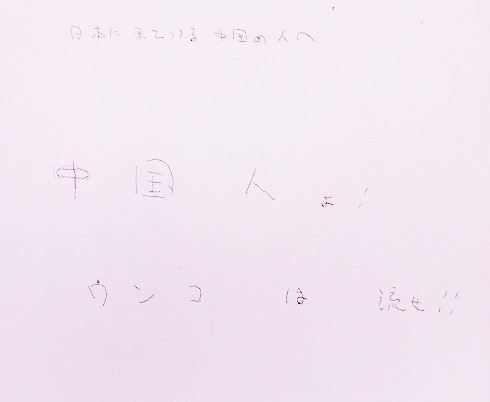 日本に来ている中国の人へ
中国人よ!
ウンコは流せ!!